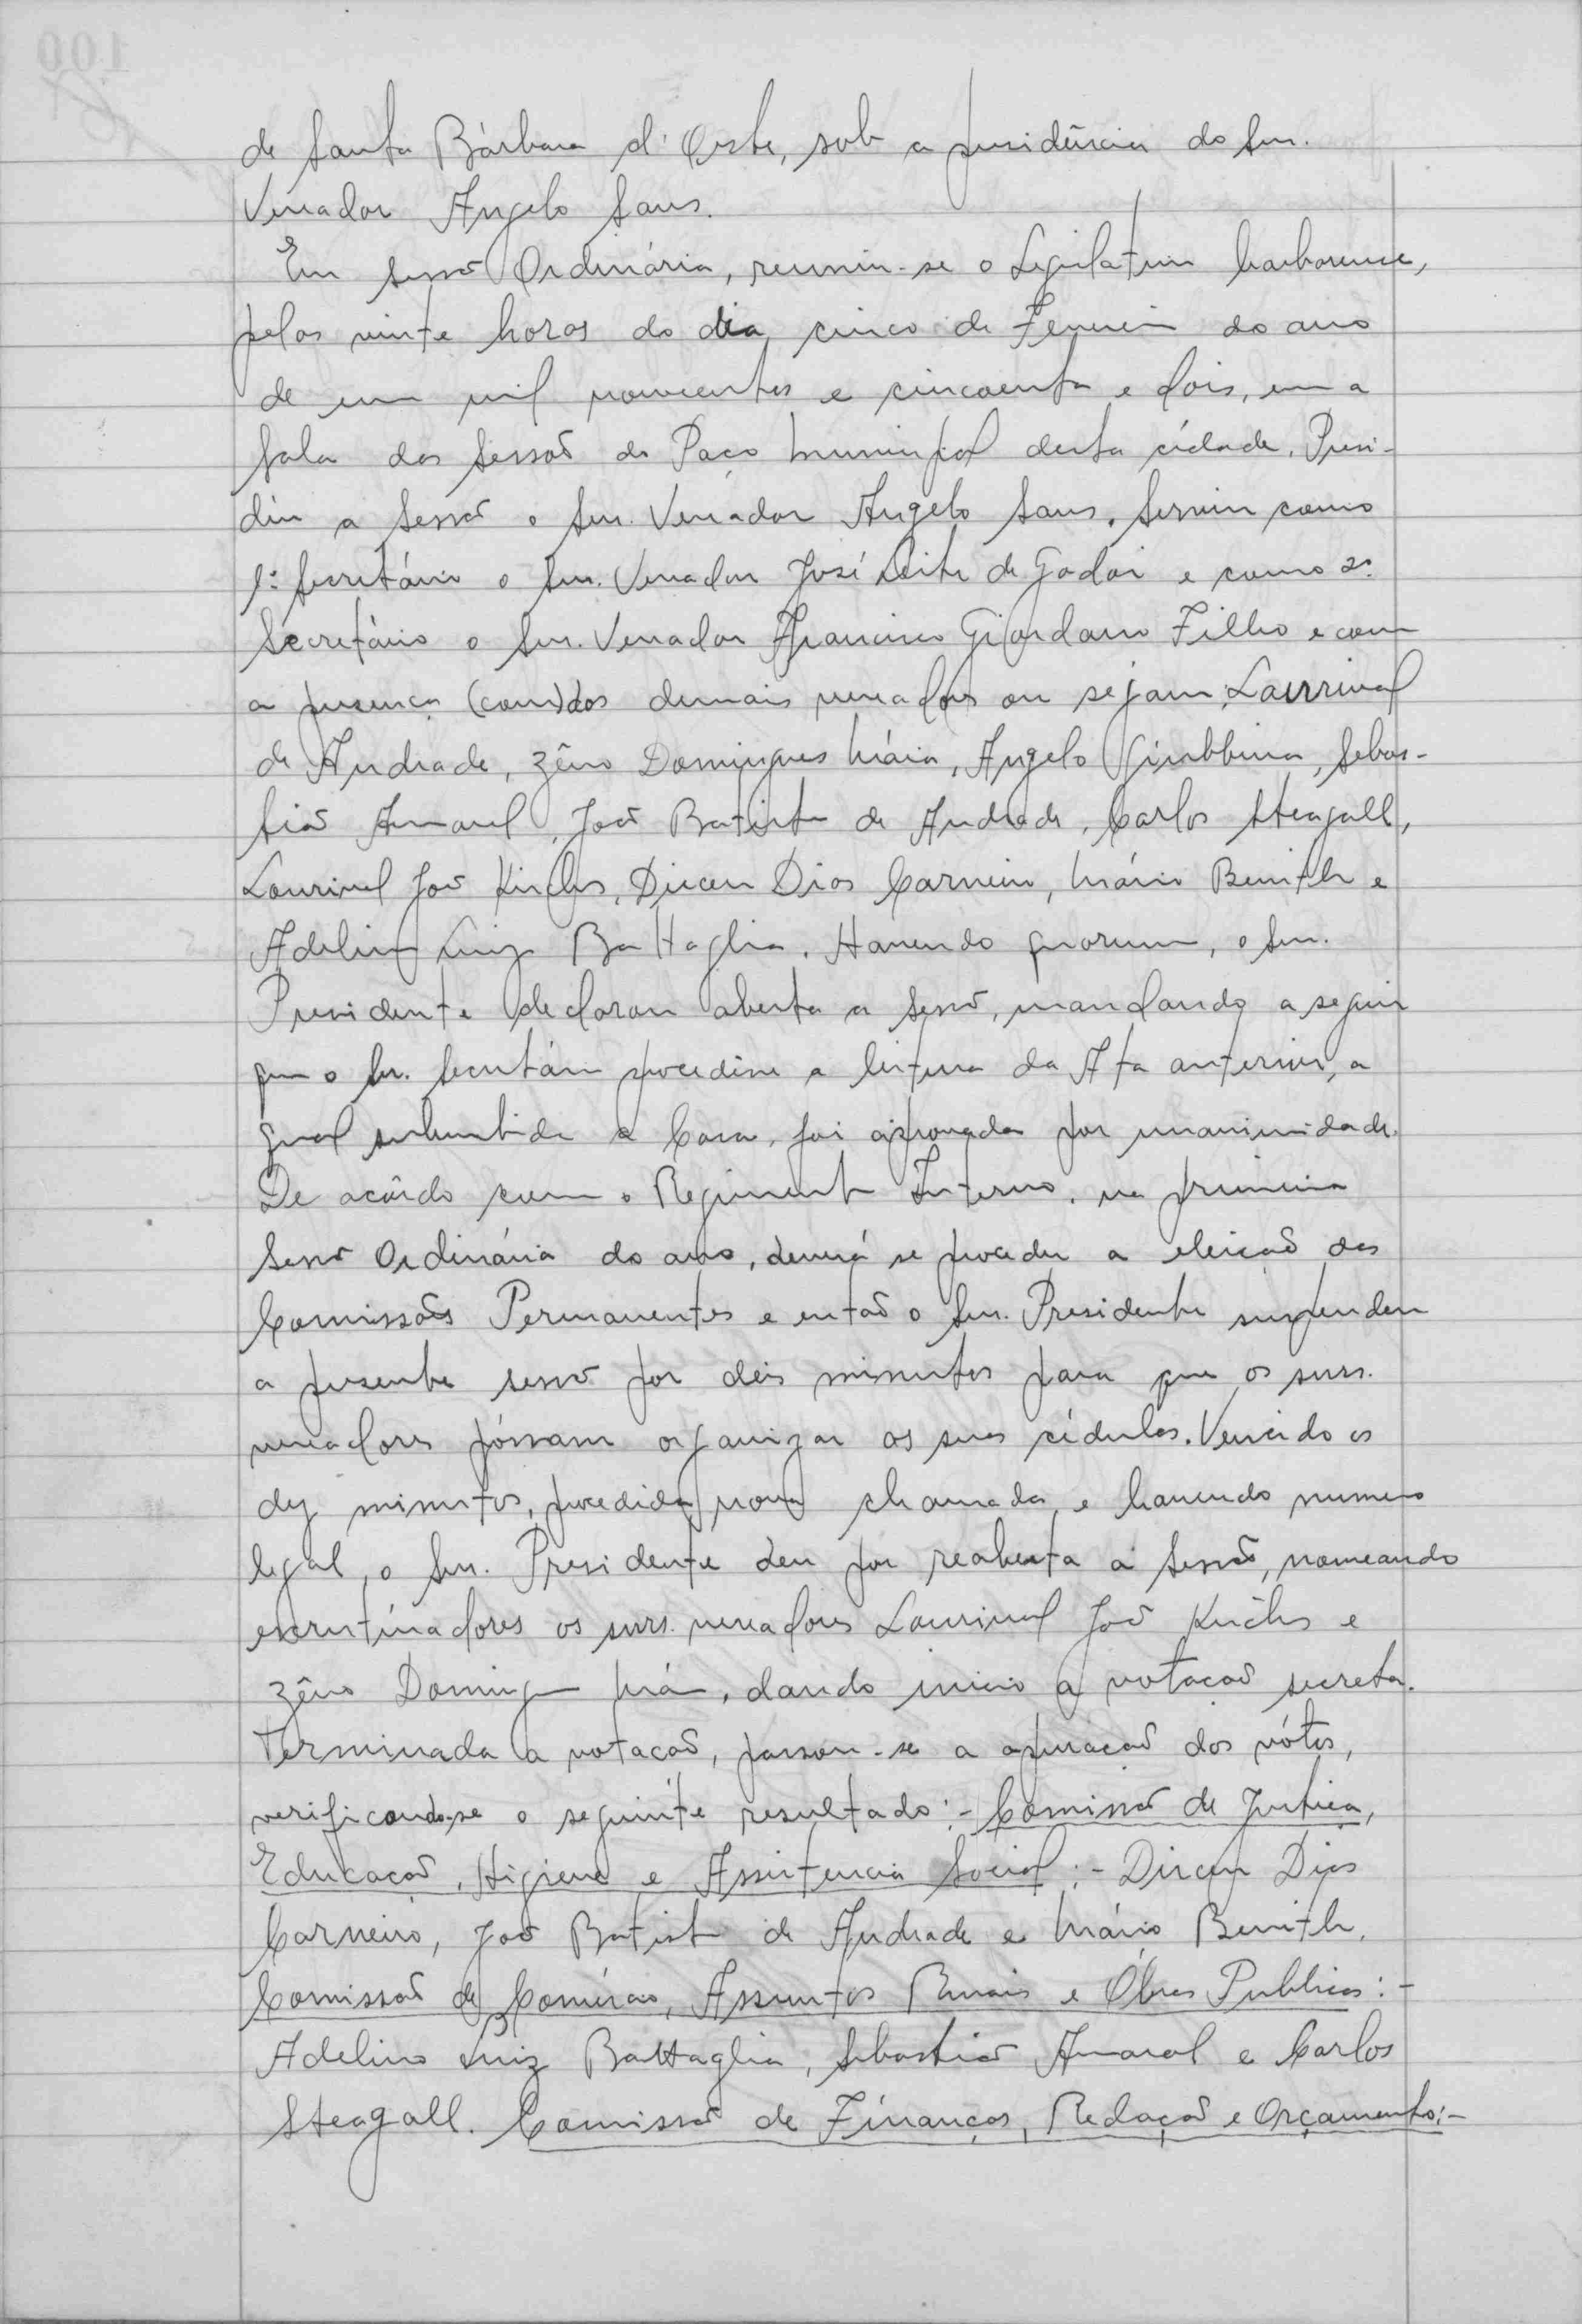 de Santa Bárbara d'Oeste, sob a presidência do Snr.
Vereador Angelo Sans.
Em Sessão Ordinária, reuniu-se o Legislativo barbarense,
pelas vinte horas do dia cinco de Fevereiro do ano
de um mil novecentos e cincoenta e dois, em a
Sala das Sessões do Paço Municipal desta cidade. Presi-
diu a Sessão o Snr. Vereador Angelo Sans. Serviu como
1º Secretário o Snr. Vereador José Leite de Godoi e como 2º
Secretário o Snr. Vereador Francisco Giordano Filho e com
a presença (com) dos demais vereadores ou sejam: Laurival
de Andrade, Zêno Domingues Máia, Angelo Giubbina, Sebas-
tião Amaral, João Batista de Andrade, Carlos Steagall,
Lourival João Küchs, Dirceu Dias Carneiro, Mário Benith e
Adelino Luiz Battaglia. Havendo quorum, o Snr.
Presidente declarou aberta a Sessão, mandando a seguir
que o Sr. Secretário procedesse a leitura da Ata anterior, a
qual submetida a Casa, foi aprovada por unanimidade.
De acôrdo com o Regimento Interno, na primeira
Sessão Ordinária do ano, deverá se proceder a eleição das
Comissões Permanentes e então o Snr. Presidente suspendeu
a presente sessão por déis minutos para que os snrs.
vereadores póssam organizar as suas cédulas. Vencido os
dez minutos, procedida nova chamada, e havendo numero
legal, o Snr. Presidente deu por reaberta a Sessão, nomeando
escrutinadores os snrs. vereadores Laurival João Küchs e
Zêno Domingues Máia, dando inicio a votação secreta.
Terminada a votação, passou-se a apuração dos vótos,
verificando-se o seguinte resultado:- Comissão de Justiça,
Educação, Higiene e Assistencia Social:- Dirceu Dias
Carneiro, João Batista de Andrade e Mário Benith.
Comissão de Comércio, Assuntos Rurais e Óbras Publicas:-
Adelino Luiz Battaglia, Sebastião Amaral e Carlos
Steagall. Comissão de Finanças, Redação e Orçamento:-